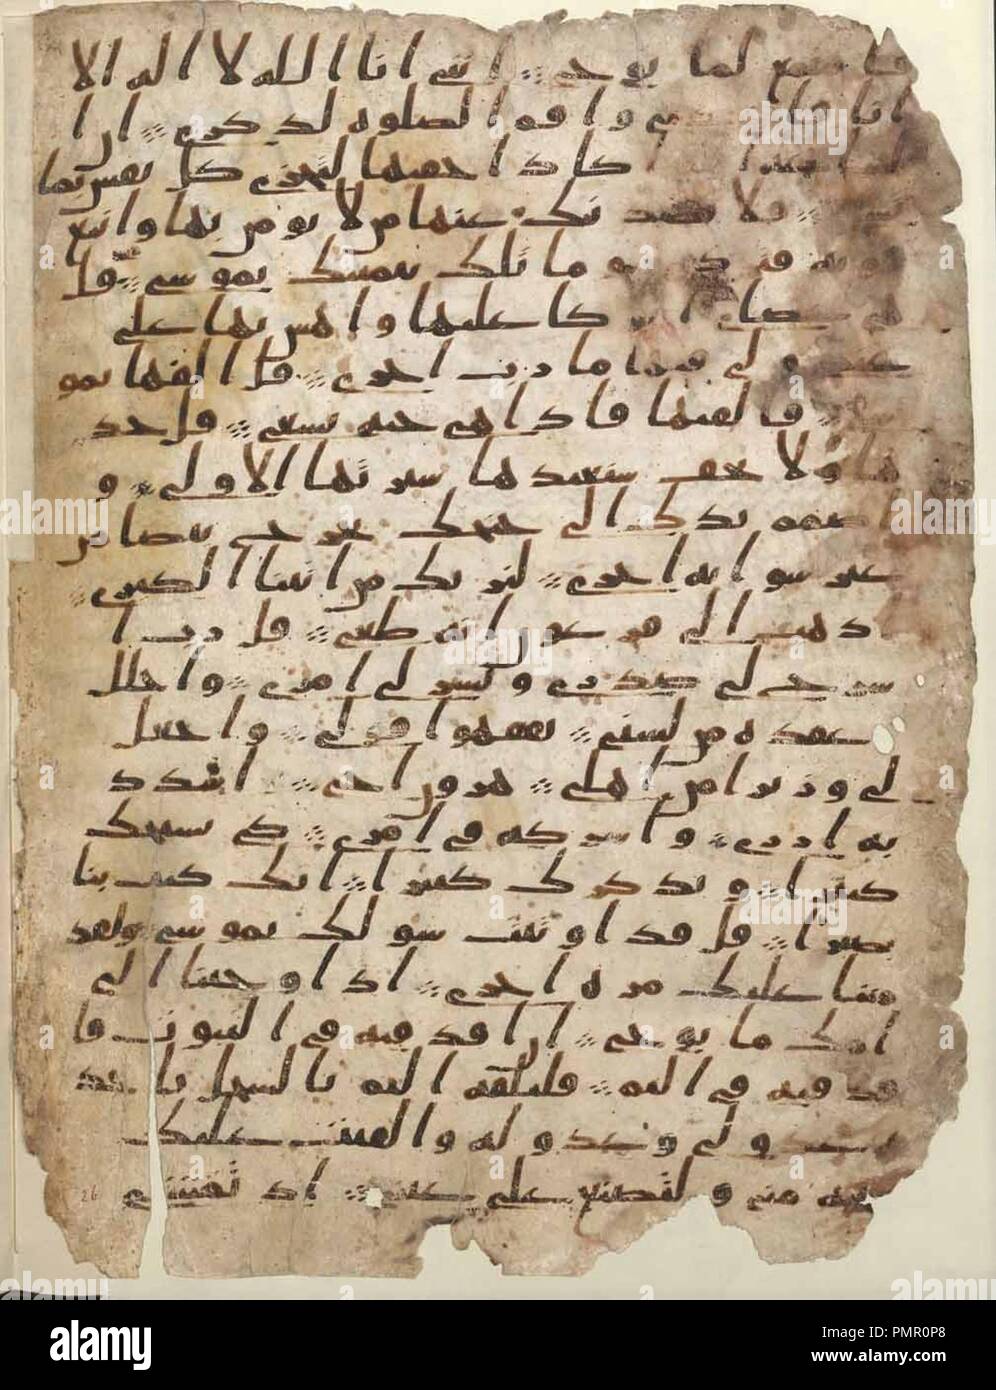 فاستمع لما يوحى ⁘ انني انا الله لا اله الا
انا فاعبدني واقم الصلوه لذكري ⁘ ان ا
كاد اخفيها لتجزى كل نفس بما
فلا يصدنك عنها من لا يومن بها واتبع
هويه فتردى وما تلك بيمينك يموسى ⁘ قل
هي عصاي اتوكا عليها واهش بها على
غنمي ولي فيها مارب اخرى ⁘ قل القها يمو
سى ⁘ فالقيها فاذا هي حيه تسعى ⁘ قل خذ
ها ولا تخف سنعيدها سيرتها الاولى ⁘ و
اضمم يدك الى جنحك تخرج بيضا من
غير سو ايه اخرى ⁘ لنريك من ايتنا الكبرى ⁘
اذهب الى فرعون انه طغى ⁘ قل رب ا
شرح لي صدري ويسر لي امري ⁘ واحلل
عقده من لسني ⁘ يفقهوا قولي ⁘ واجعل
لي وزيرا من اهلي ⁘ هرون اخي ⁘ اشدد
به ازري ⁘ واشركه في امري ⁘ كي نسبحك
كثيرا ⁘ ونذكرك كثيرا ⁘ انك كنت بنا
بصيرا ⁘ قل قد اوتيت سولك يموسى ولقد
مننا عليك مره اخرى ⁘ اذ اوحينا الى
امك ما يوحى ⁘ ان اقذفيه في التبوت فا
قذفيه في اليم ⁘ فليلقه اليم بالسحل ياخذ
ه عدو لي وعدو له والقيت عليك
محبه مني ولتصنع على عيني ⁘ اذ تمشي
26
alamy
Image ID: PMR0P8
www.alamy.com